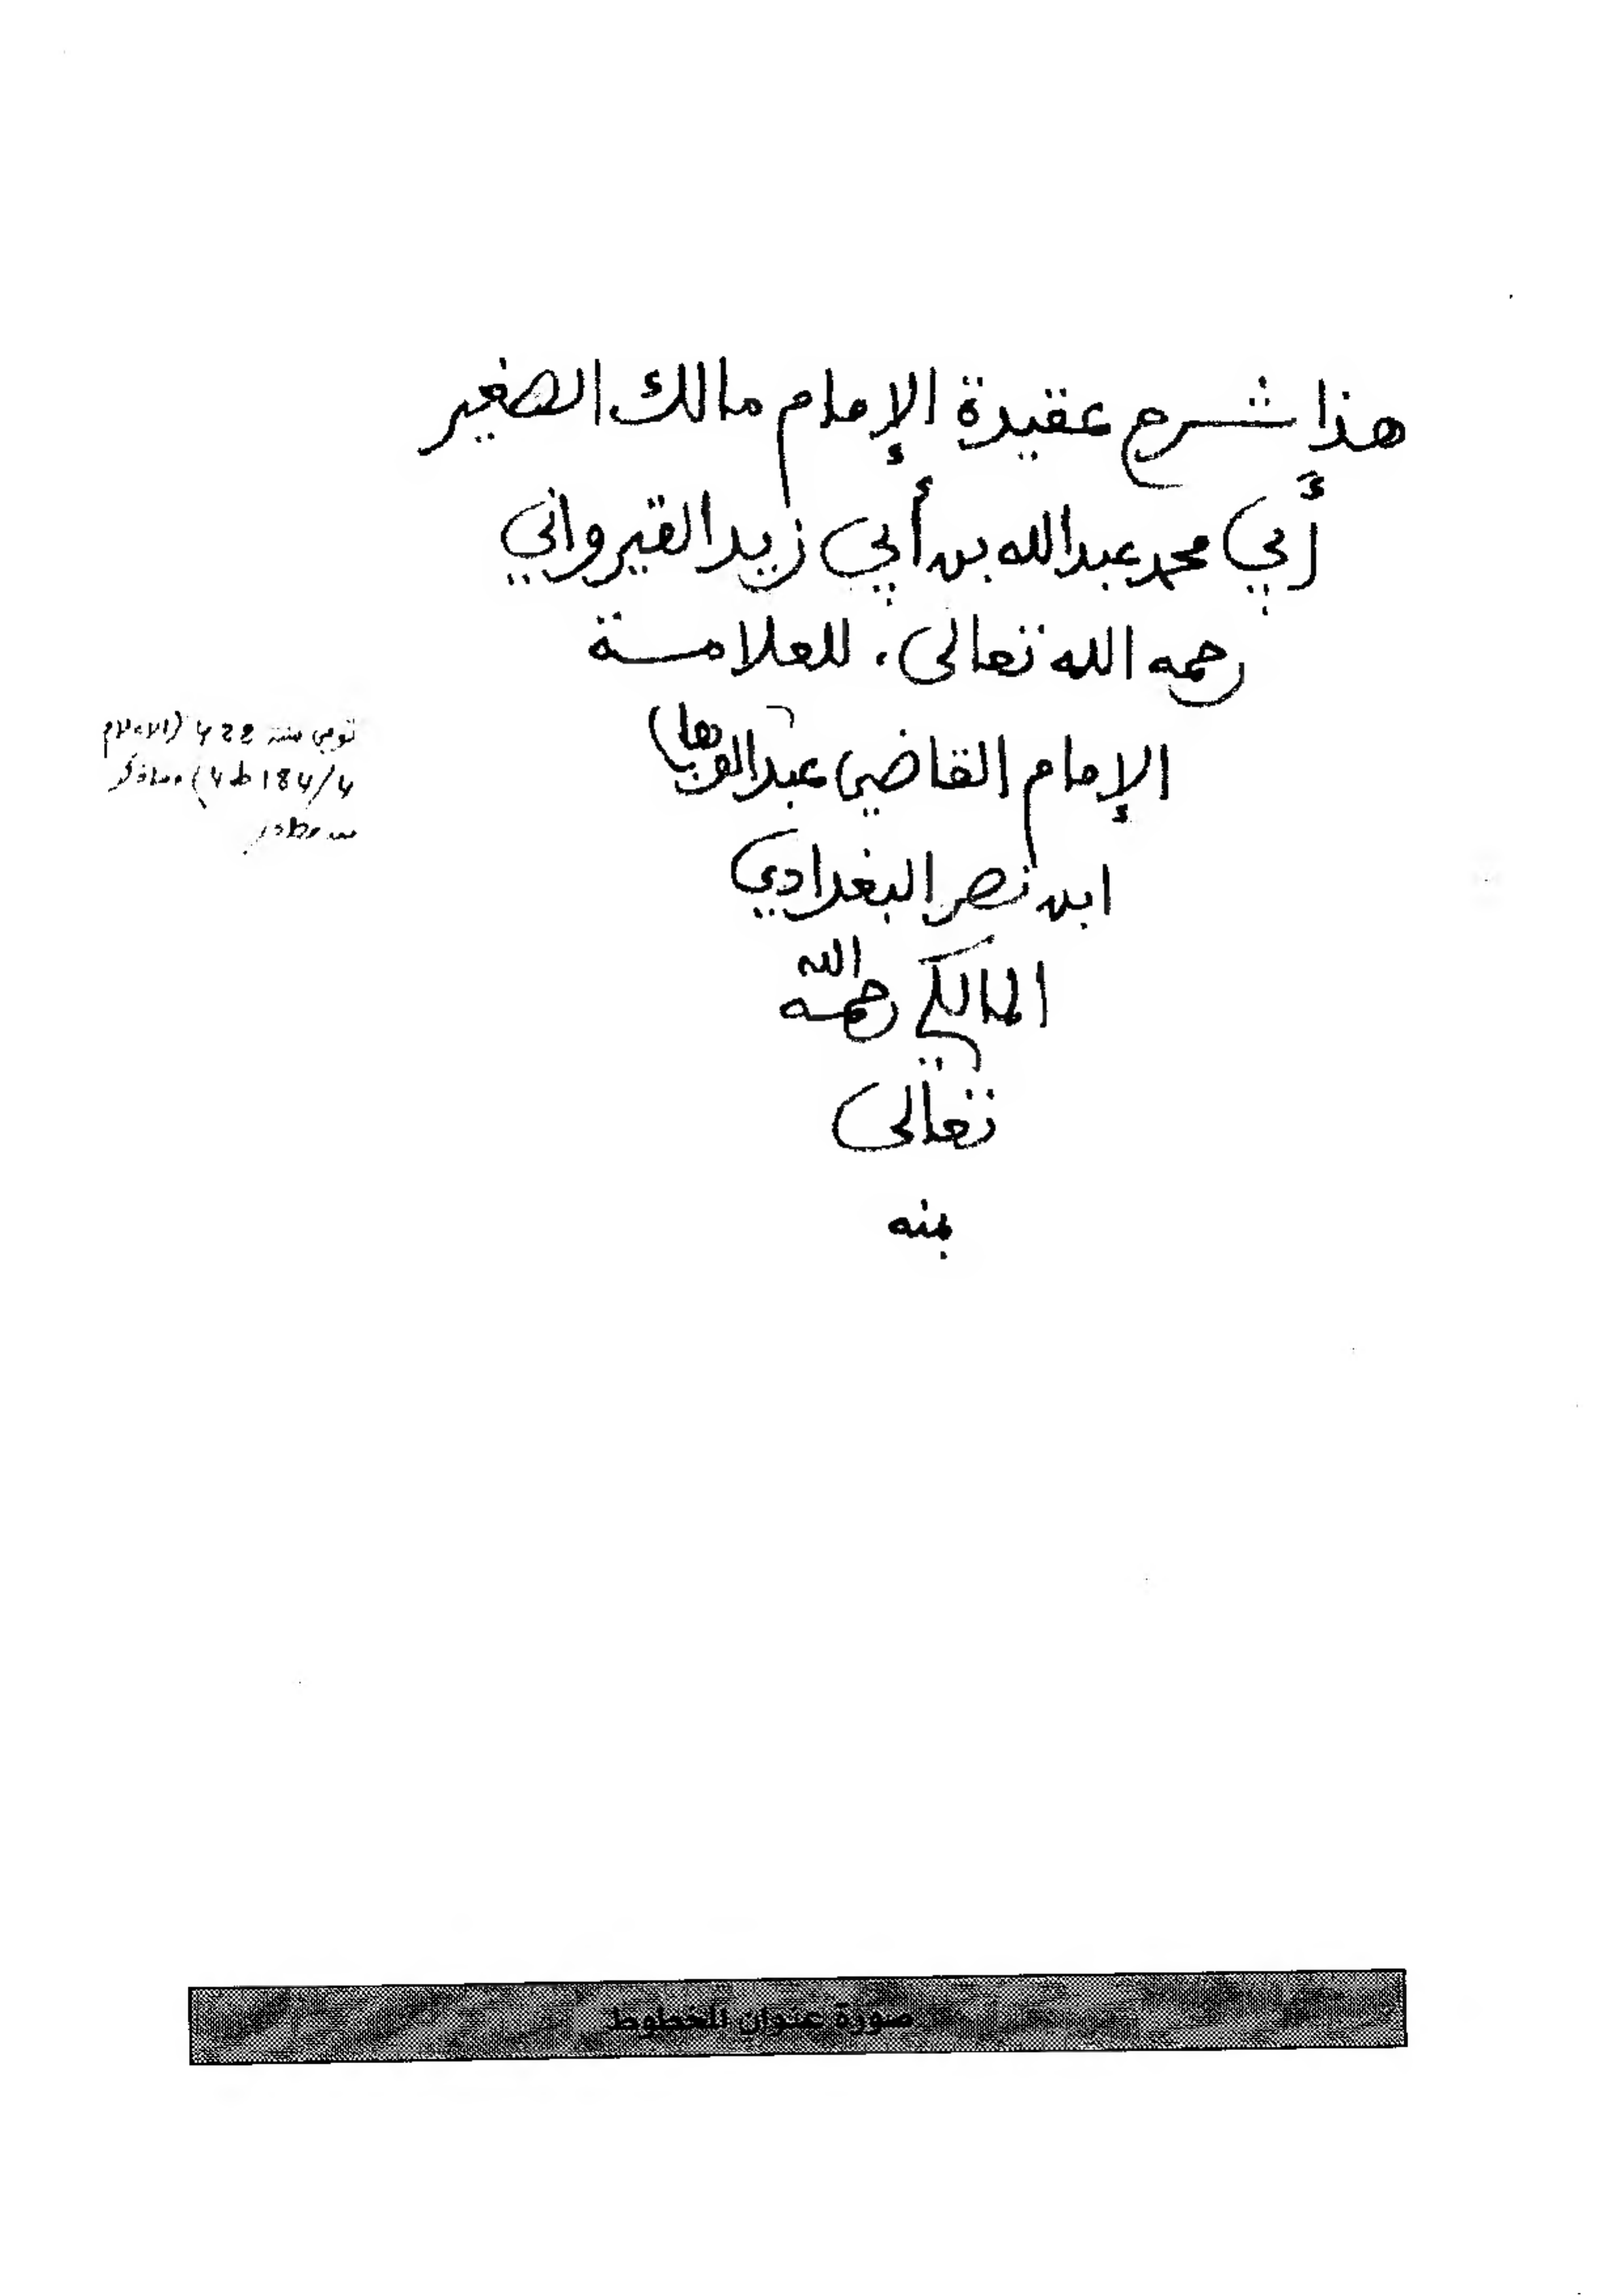 هذا شرح عقيدة الإمام مالك الصغير
أبي محمد عبدالله بن أبي زيد القيرواني
رحمه الله تعالى، للعلامة
الإمام القاضي عبدالوهاب
ابن نصر البغدادي
المالكي رحمه الله
تعالى
بمنه
توفي سنة
184/4 ط 4)
صورة عنوان المخطوط